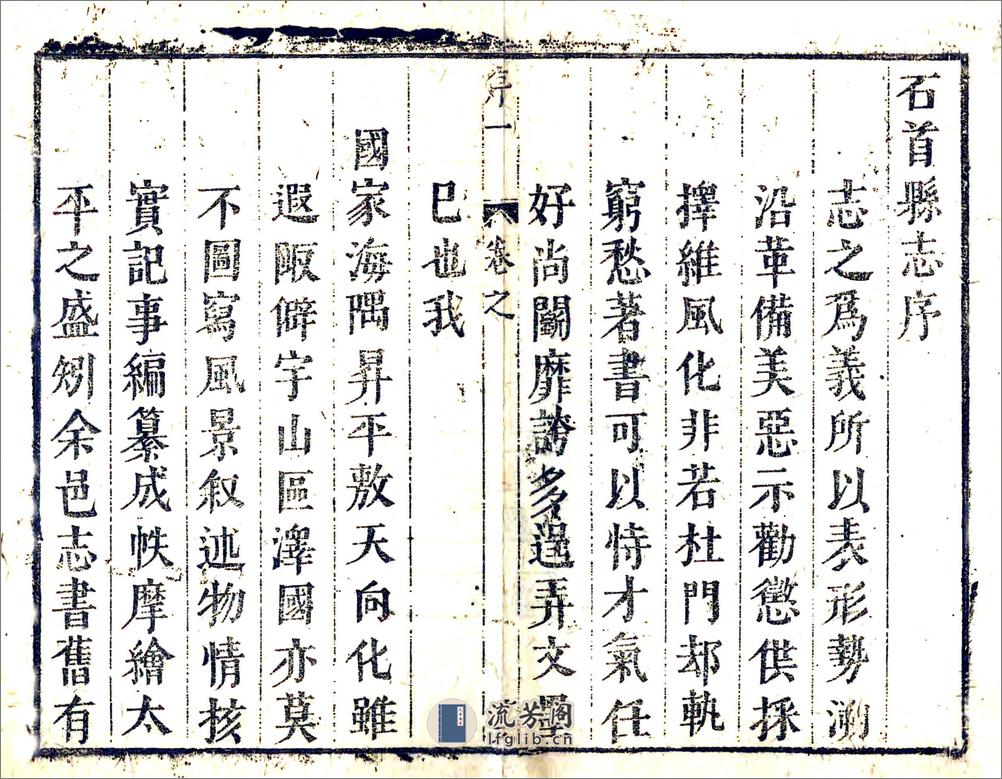 石首縣志序
志之爲義所以表形勢溯
沿革備美惡示勸懲供採
擇維風化非若杜門却軌
窮愁著書可以恃才氣任
好尚闘靡誇多逞弄文墨
序一 卷之
已也我
國家海隅昇平敷天向化雖
遐陬僻宇山區澤國亦莫
不圖寫風景叙述物情核
實記事編纂成帙摩繪太
平之盛矧余邑志書舊有
流芳閣
lfglib.cn